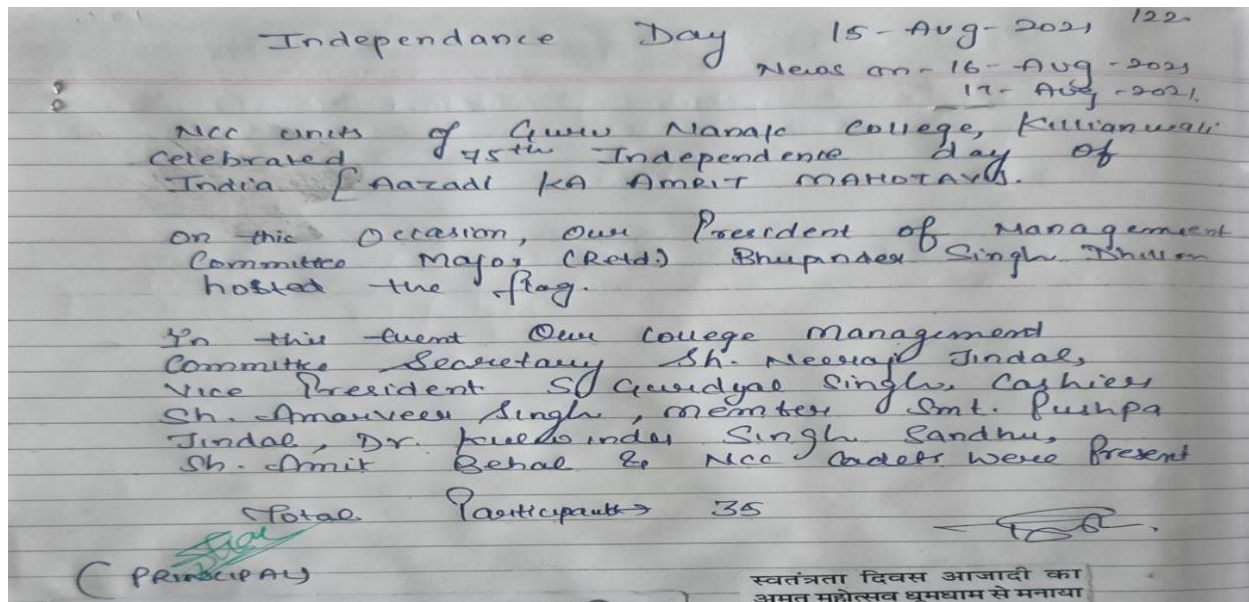 122.
Independance Day 15-Aug-2021
News on - 16-Aug-2021
17-Aug-2021.
NCC units of Guru Nanak College, Killianwali
celebrated 75th Independence day of
India [AAZADI KA AMRIT MAHOTAVS.
On this Occasion, Our President of Management
Committee Major (Retd.) Bhupinder Singh Dhillon
hosted the flag.
In this event Our College Management
Committee Secretary Sh. Neeraj Jindal,
Vice President S. Gurdyal Singh, Cashier
Sh. Amarveer Singh, member Smt. Pushpa
Jindal, Dr. Kulwinder Singh Sandhu,
Sh. Amit Behal & NCC Cadets were Present
Total Participants → 35
(PRINCIPAL)
स्वतंत्रता दिवस आजादी का
अमृत महोत्सव धूमधाम से मनाया